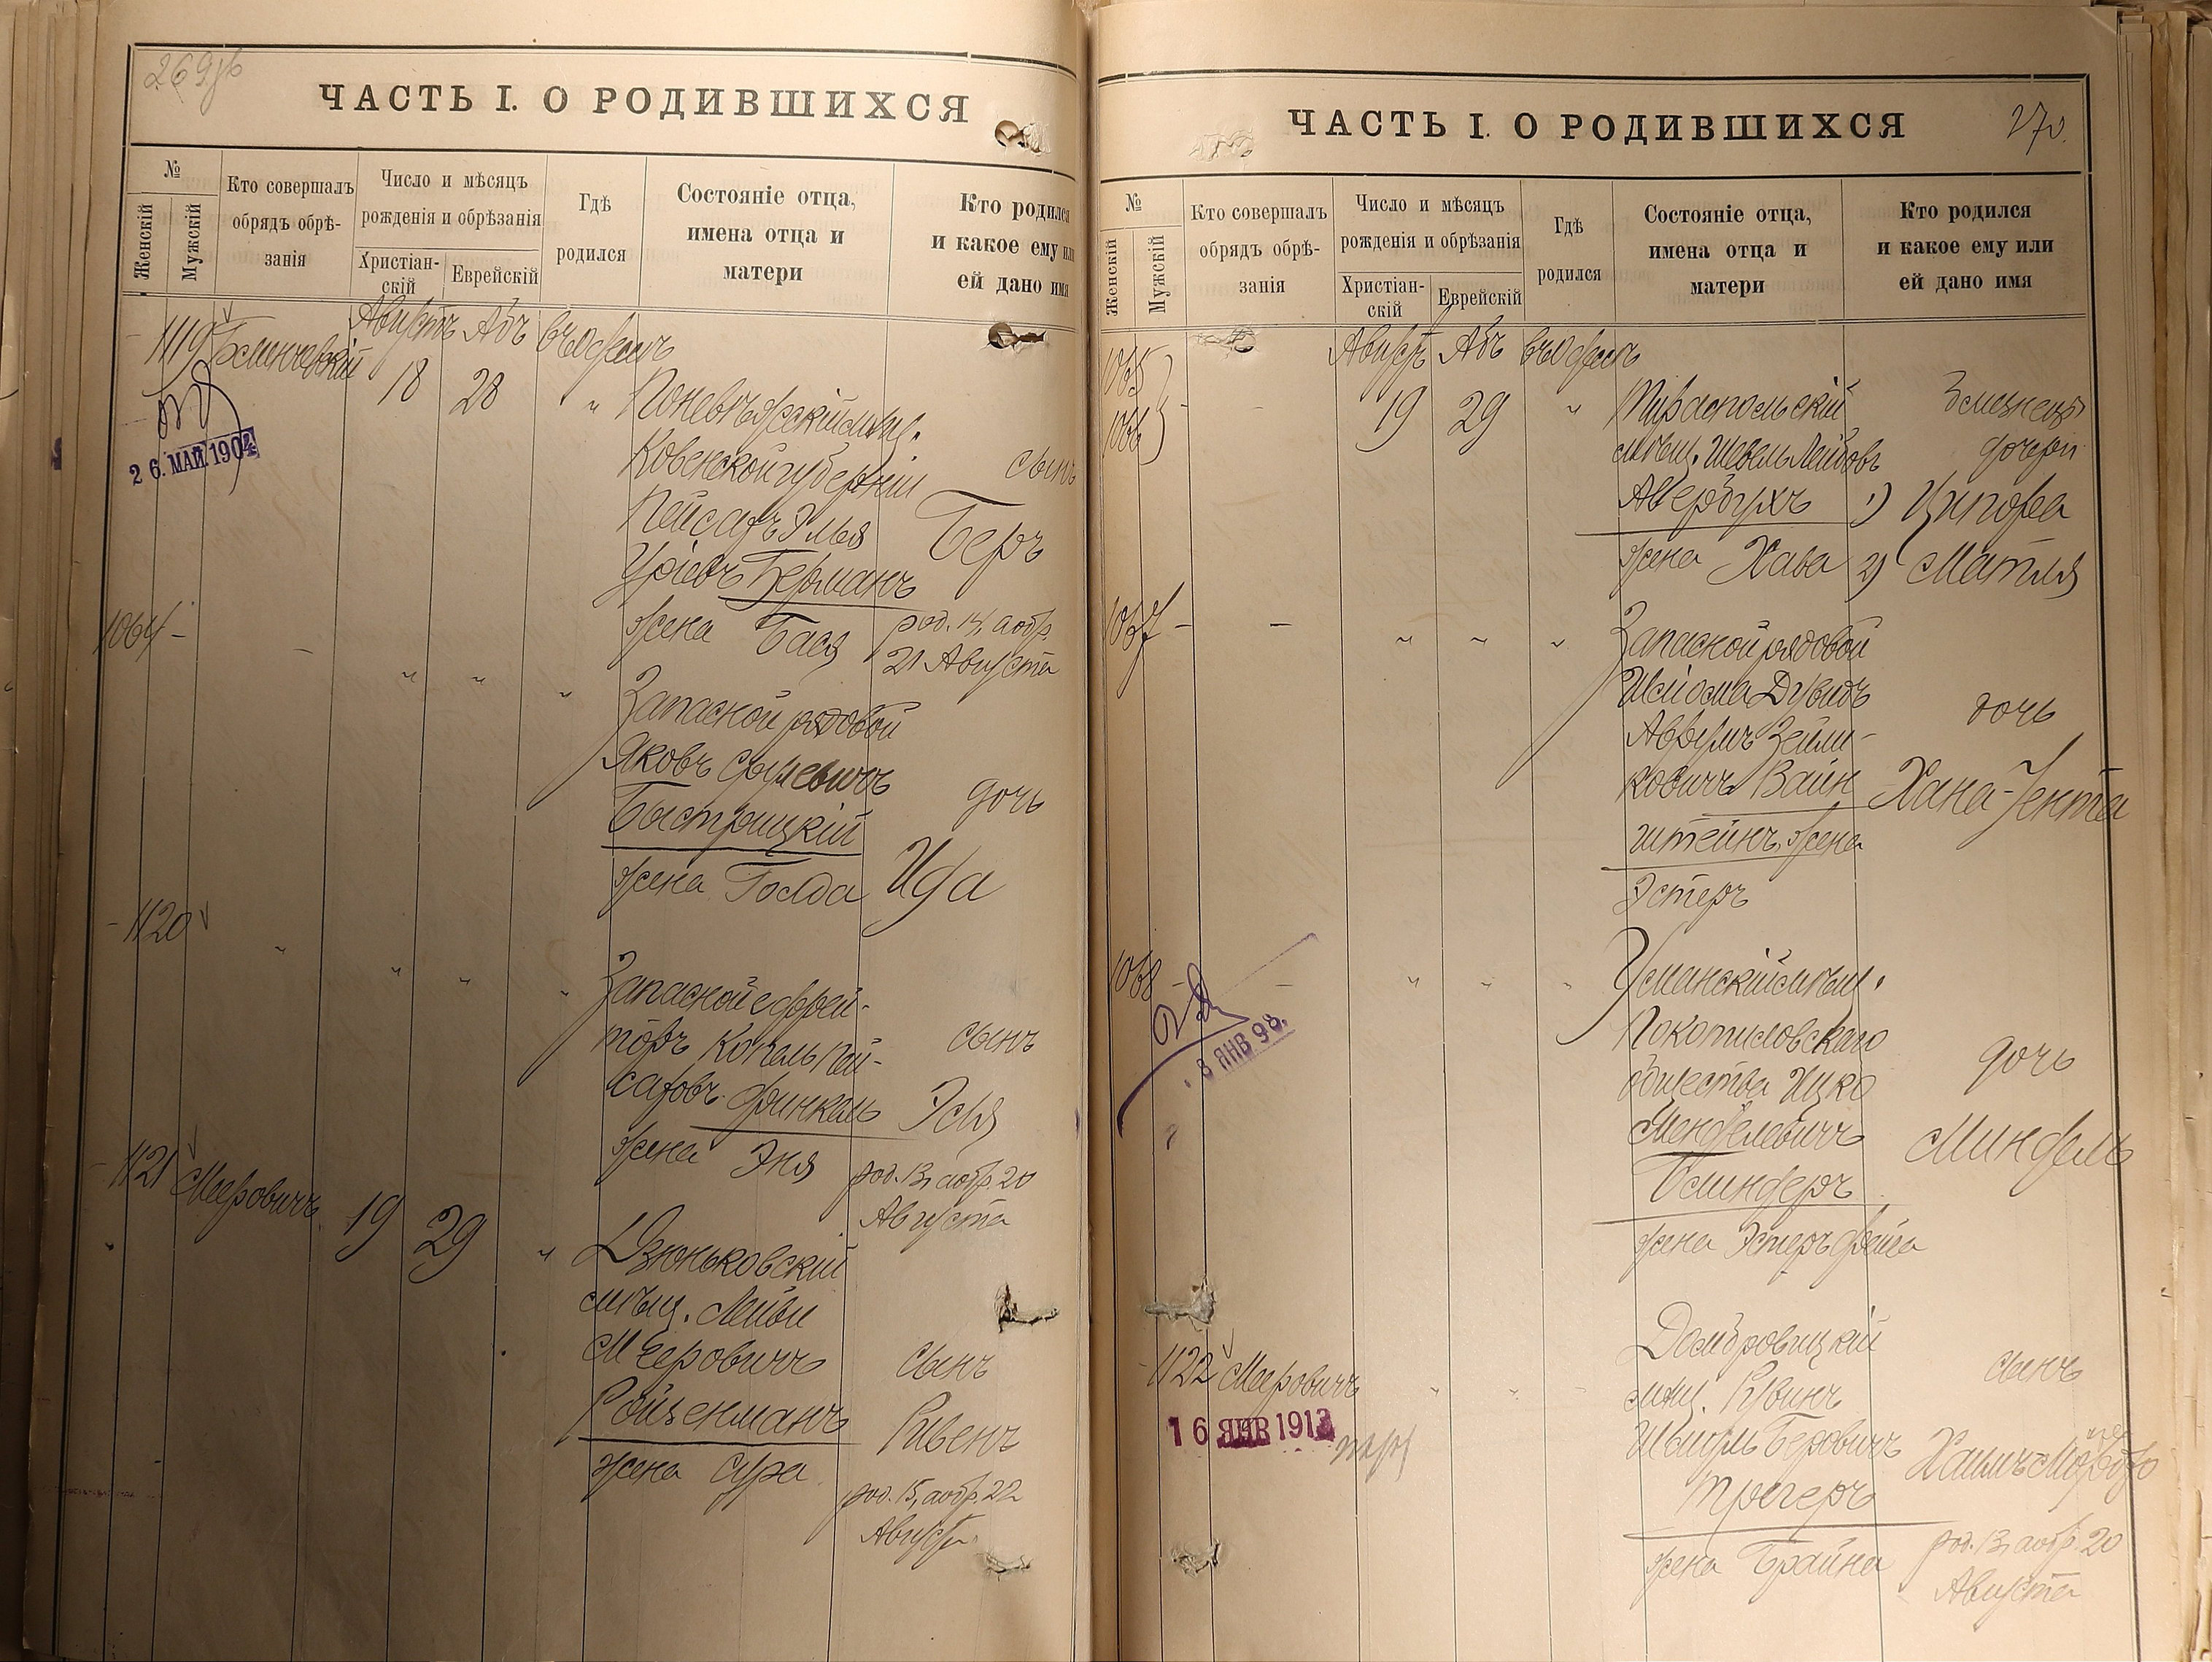 269об
ЧАСТЬ I. О РОДИВШИХСЯ
№
Женскій
Мужскій
Кто совершалъ
обрядъ обрѣ-
занія
Число и мѣсяцъ
рожденія и обрѣзанія
Христіан-
скій
Еврейскій
Гдѣ
родился
Состояніе отца,
имена отца и
матери
Кто родился
и какое ему или
ей дано имя
Августъ Абъ въ Одессѣ
1119
18 28 "
26. МАЙ 1904
Поневѣжскій мѣщ.
Ковенской губерніи
Пейсахъ Элья
Уріевъ Берманъ
жена Бася
сынъ
Беръ
род. 14, а обр.
21 Августа
1064 - - " " "
Запасной рядовой
Яковъ Срулевичъ
Быстрицкій
жена Голда
дочь
Ида
- 1120 " " " "
Запасной ефрей-
торъ Копель Пей-
саховъ Финкель
жена Эня
сынъ
род. 13, а обр. 20
Августа
- 1121 Мееровичъ 19 29 "
Дзюньковскій
мѣщ. Лейви
Мееровичъ
Ройзенманъ
жена Сура
сынъ
Рувенъ
род. 15, а обр. 22
Августа
270.
ЧАСТЬ I. О РОДИВШИХСЯ
№
Женскій
Мужскій
Кто совершалъ
обрядъ обрѣ-
занія
Число и мѣсяцъ
рожденія и обрѣзанія
Христіан-
скій
Еврейскій
Гдѣ
родился
Состояніе отца,
имена отца и
матери
Кто родился
и какое ему или
ей дано имя
Августъ Абъ въ Одессѣ
1065
1066 - - 19 29 "
Тираспольскій
мѣщ. Шевель Лейбовъ
Авербухъ
жена Хава
Близнецы
дочери
1) Ципора
2) Матля
1067 - - " " "
Запасной рядовой
Шлiома Дувидъ
Аврумъ Зейли-
ковичъ Вайн
штейнъ, жена
Эстеръ
дочь
Хана-Ента
1068 - - " " "
8 ЯНВ 98.
Уманскій мѣщ.
Покотиловскаго
общества Ицко
Менделевичъ
жена Эстеръ Фейга
дочь
Миндель
- 1122 Мееровичъ " " "
16 ЯНВ 1913
Домбровицкій
мѣщ. Рувинъ
Шмуль Беровичъ
Трегеръ
жена Брайна
сынъ
Хаимъ Мордко
род. 13, а обр. 20
Августа